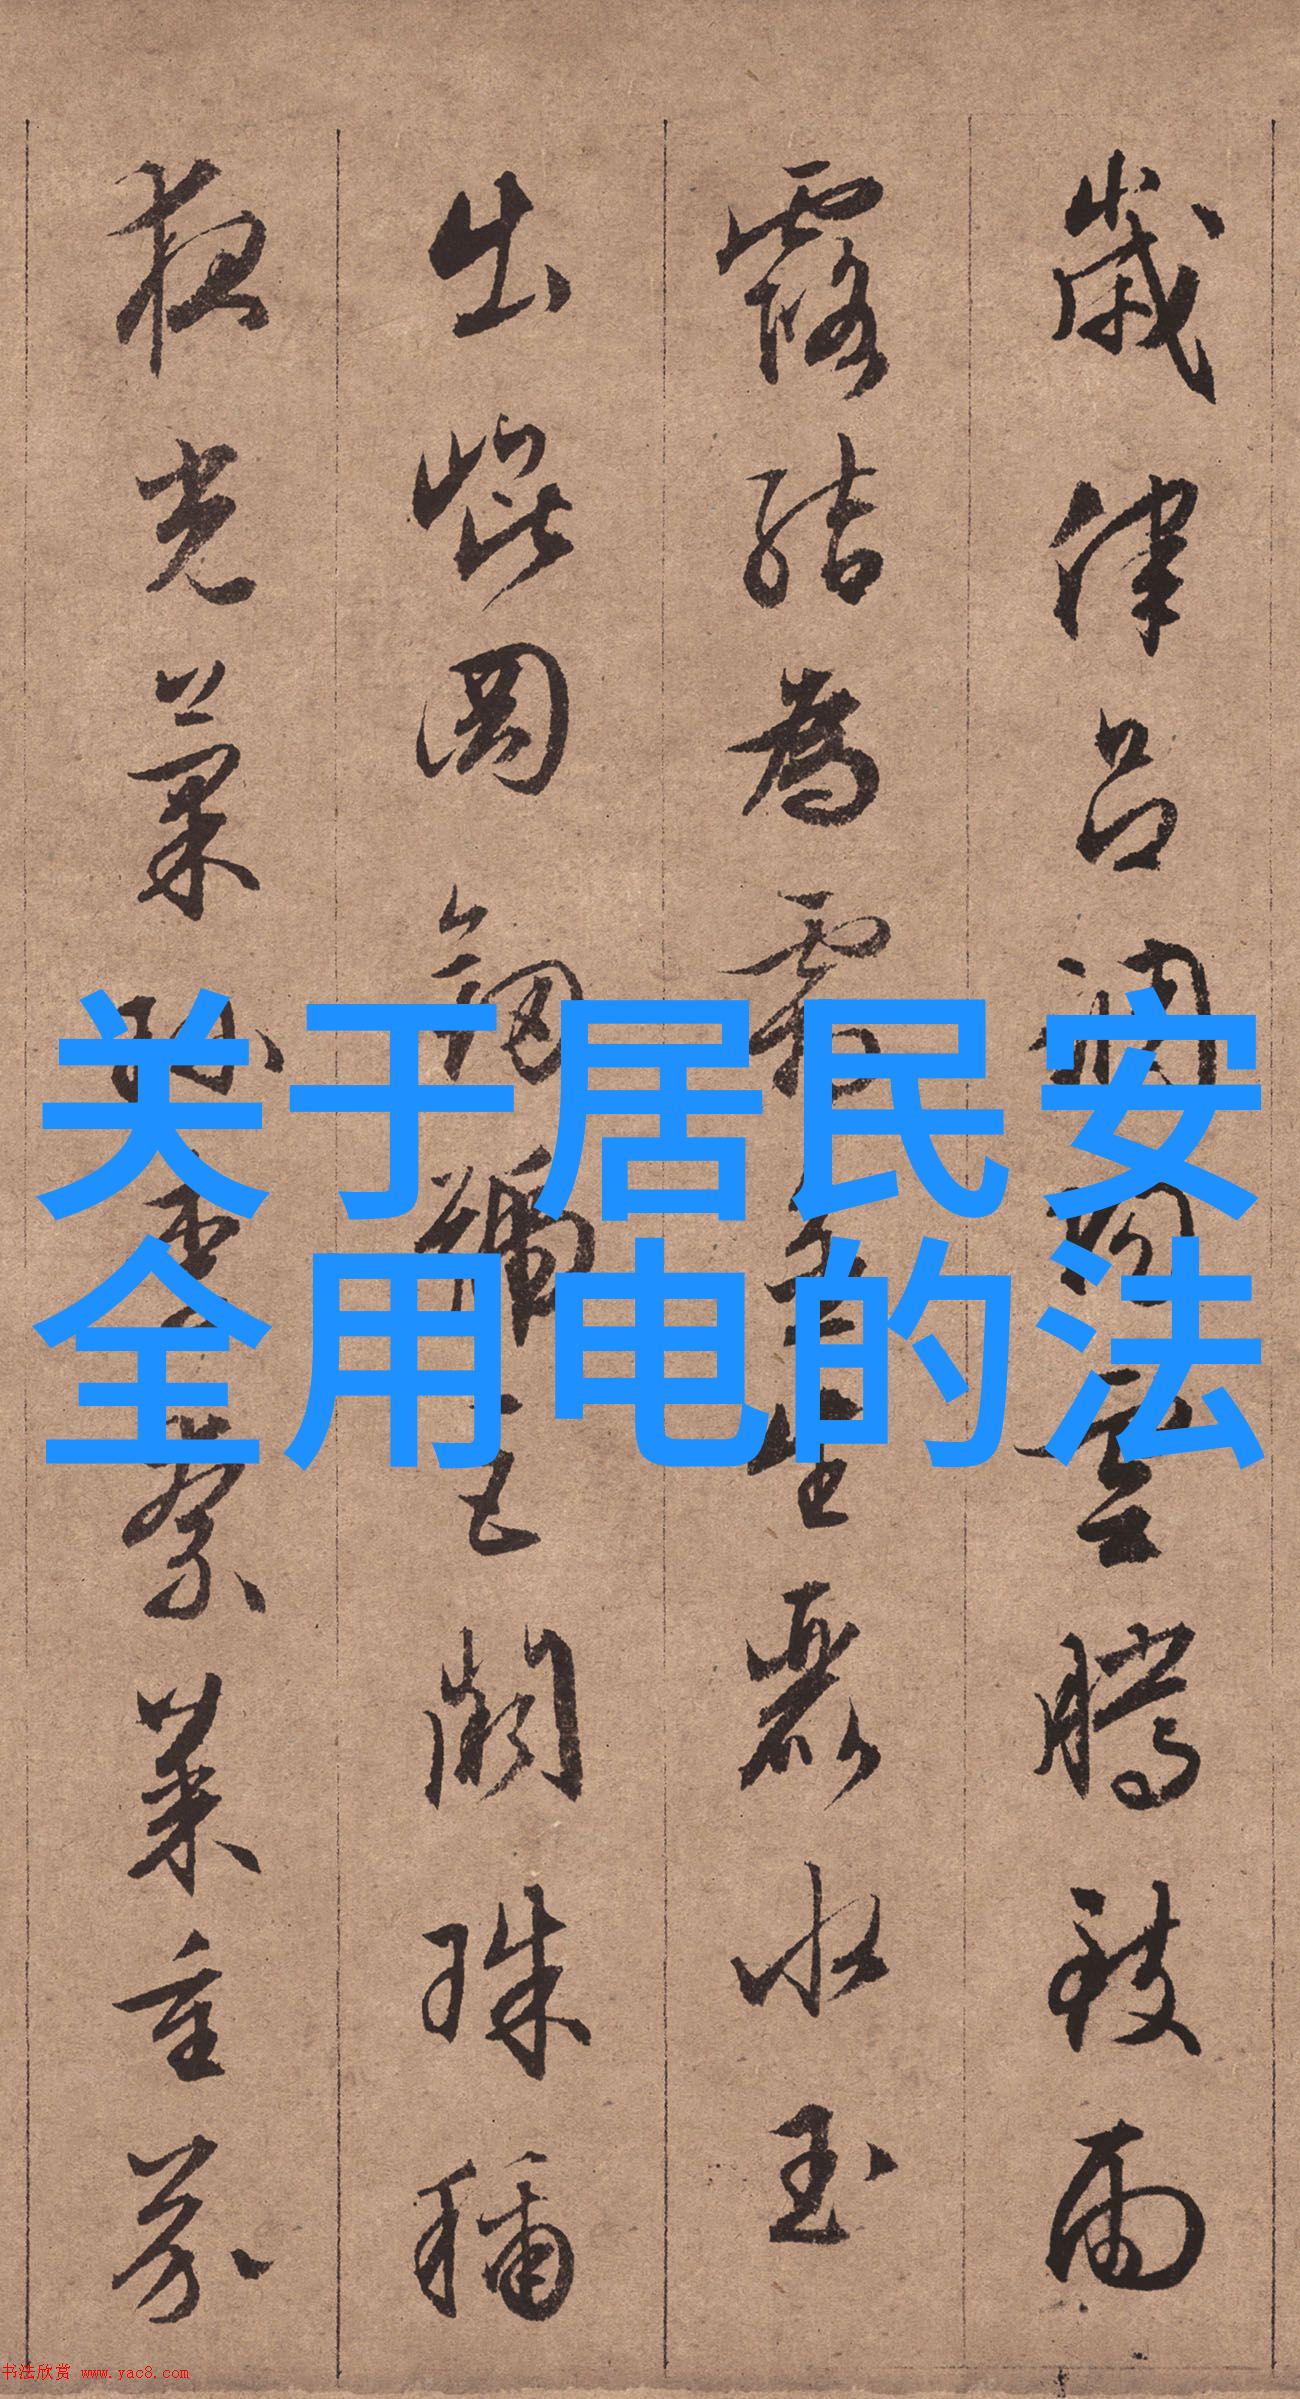 歲律呂調陽雲騰致雨
露結為霜金生麗水玉
出崐岡劍號巨闕珠稱
夜光菓珎李柰菜重芥
关于居民安
全用电的法
书法欣赏 www.yac8.com